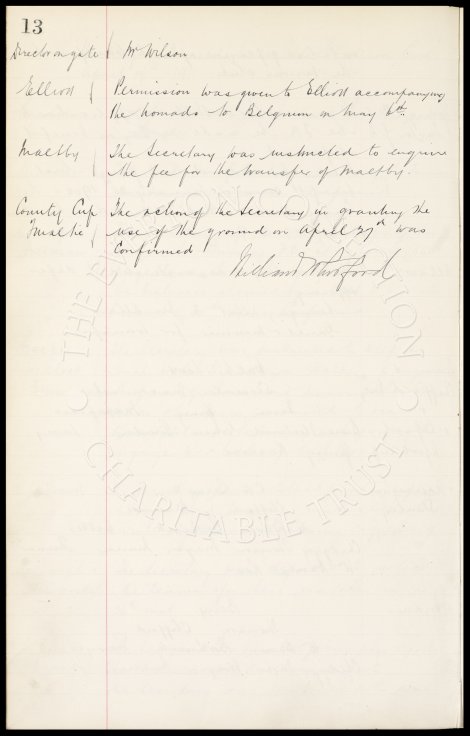 13
Director on gate { Mr Wilson
Elliott { Permission was given to Elliott accompanying
the Nomads to Belgium on May 6th.
Maltby { The Secretary was instructed to enquire
the fee for the transfer of Maltby.
County Cup The action of the Secretary in granting the
Finalie { use of the ground on April 27th was
Confirmed
THE EVERTON COLLECTION
CHARITABLE TRUST